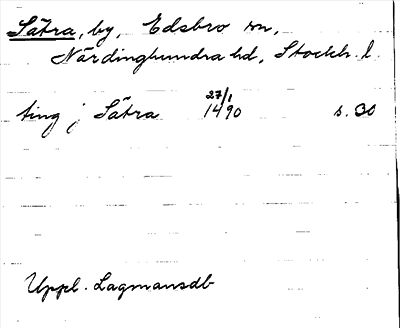 Sätra, by, Edsbro sn,
Närdinghundra hd, Stockh. l.
ting i Sätra 27/1 1490 s. 30
Uppl. Lagmansdb